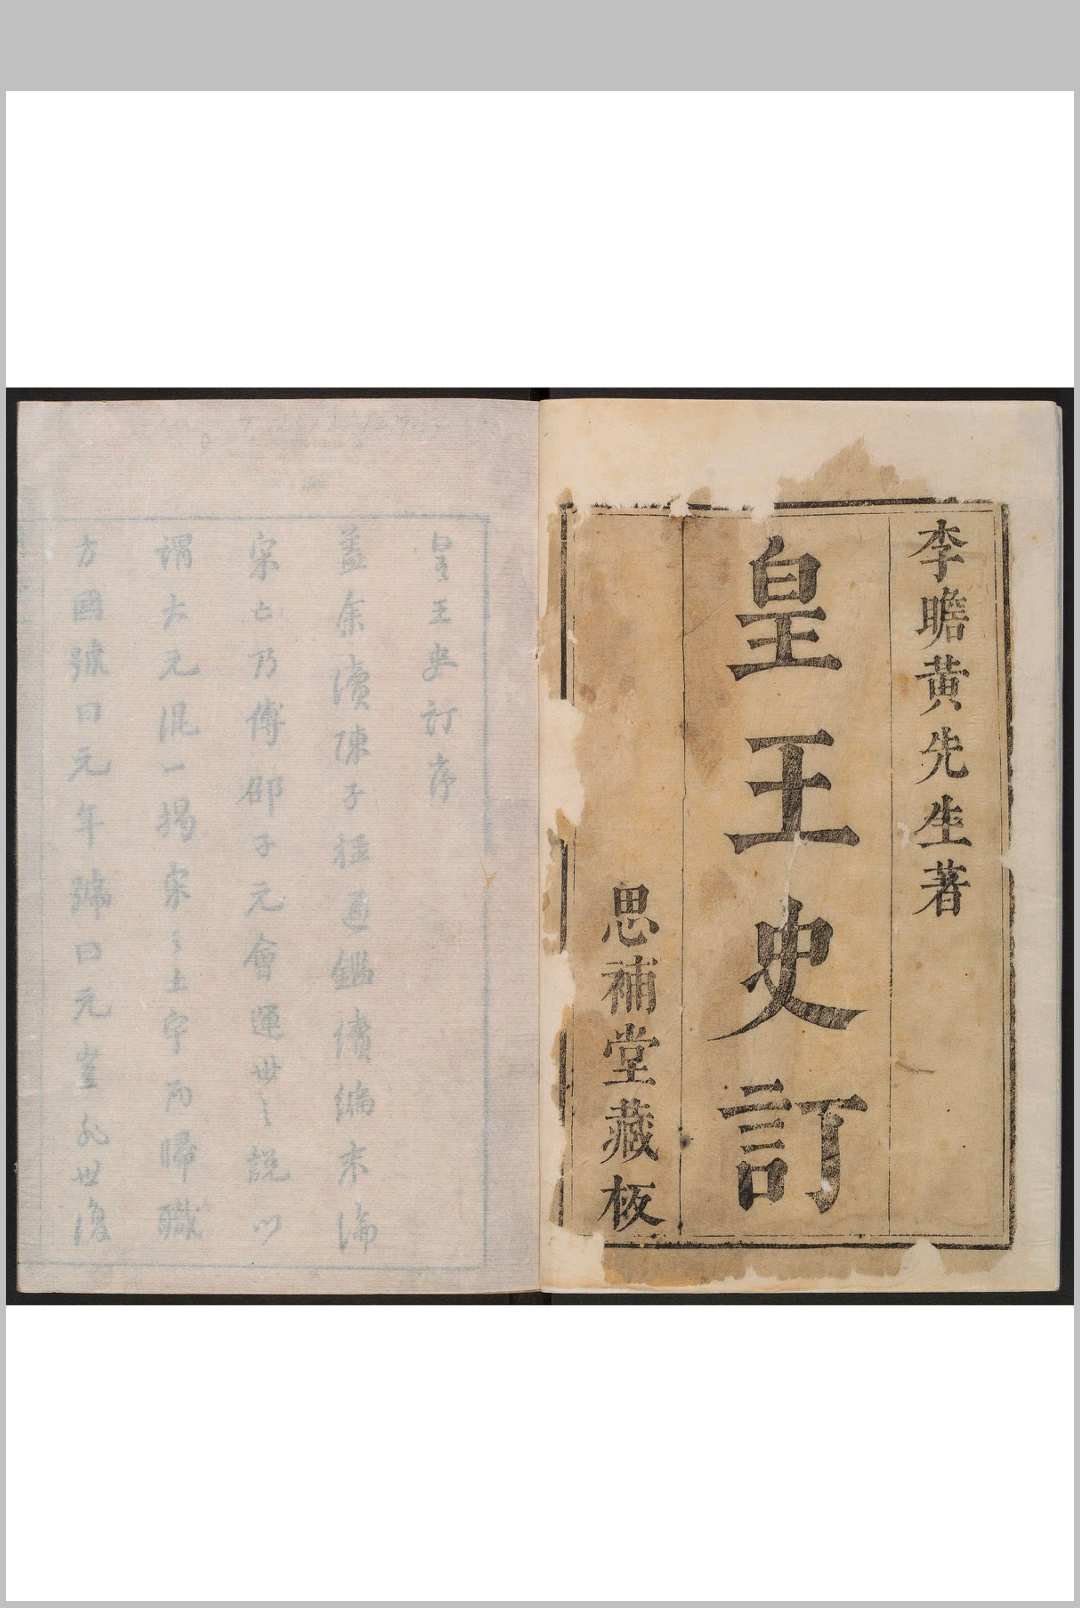 李瞻黃先生著
皇王史訂
思補堂藏板
皇王史訂序
蓋余讀陳子桱通鑑續編末論
宋亡乃傅邵子元會運世之說以
謂大元混一揭宋之土宇而歸職
方國號曰元年號曰元豈於世復